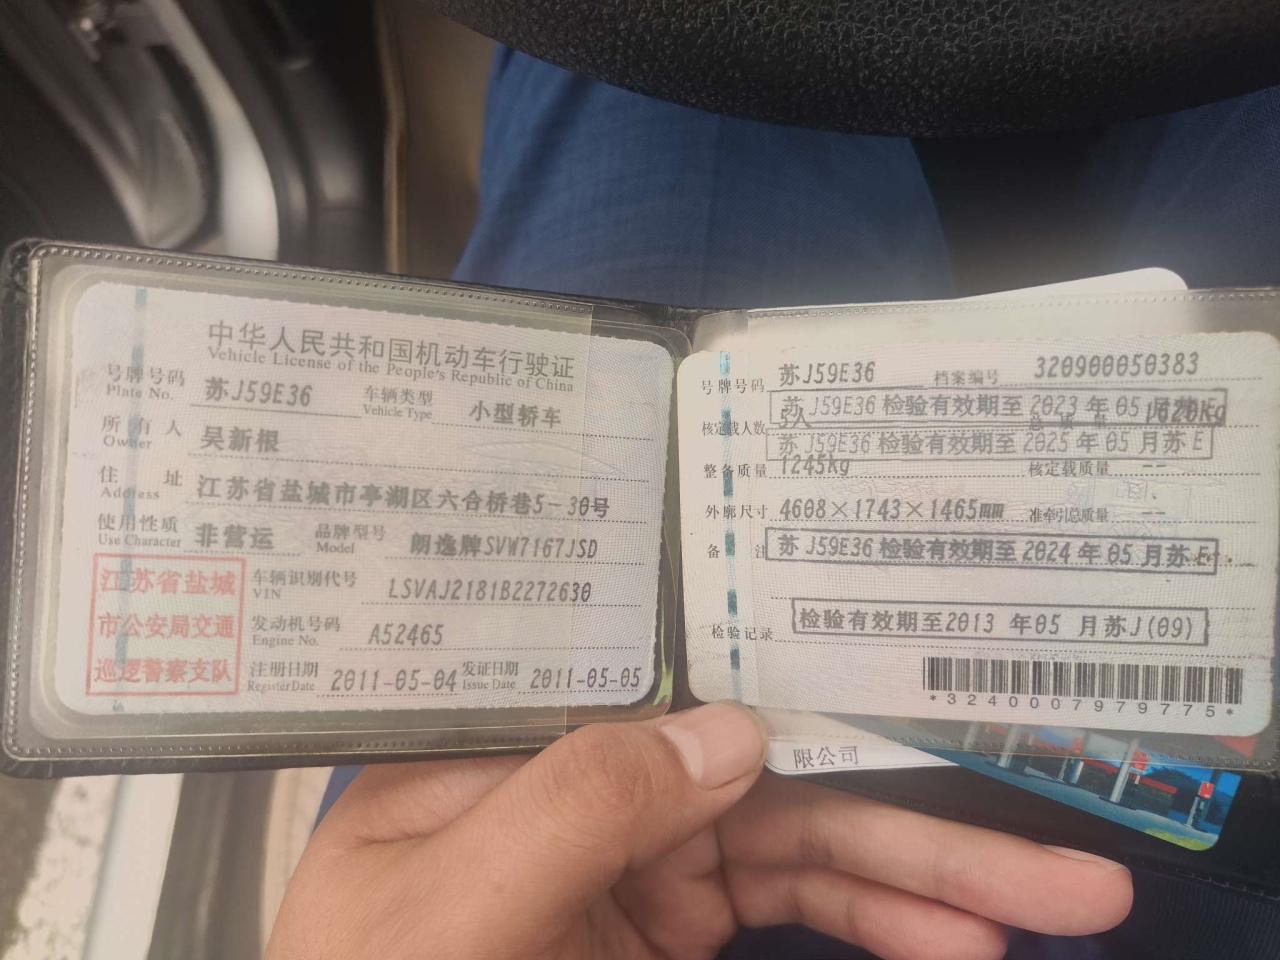 中华人民共和国机动车行驶证
Vehicle License of the People's Republic of China
号牌号码 苏J59E36 车辆类型 小型轿车
Plate No. Vehicle Type
所有人 吴新根
Owner
住址 江苏省盐城市亭湖区六合桥巷5-30号
Address
使用性质 非营运 品牌型号 朗逸牌SVW7167JSD
Use Character Model
江苏省盐城
市公安局交通
巡逻警察支队
车辆识别代号 LSVAJ2181B2272630
VIN
发动机号码 A52465
Engine No.
注册日期 2011-05-04 发证日期 2011-05-05
Register Date Issue Date
号牌号码 苏J59E36 档案编号 320900050383
苏J59E36 检验有效期至 2023 年 05 月苏E
核定载人数 5人 总质量 1620Kg
苏J59E36 检验有效期至 2025 年 05 月苏E
整备质量 1245Kg 核定载质量 --
外廓尺寸 4608×1743×1465mm 准牵引总质量 --
备注 苏J59E36 检验有效期至 2024 年 05 月苏E
检验记录 检验有效期至2013 年05 月苏J(09)
*3240007979775*
限公司